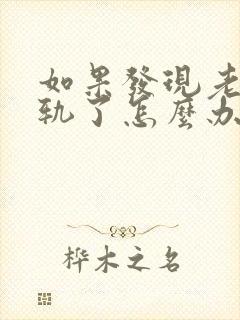 如果發現老
軌了怎麼办
桦木之名